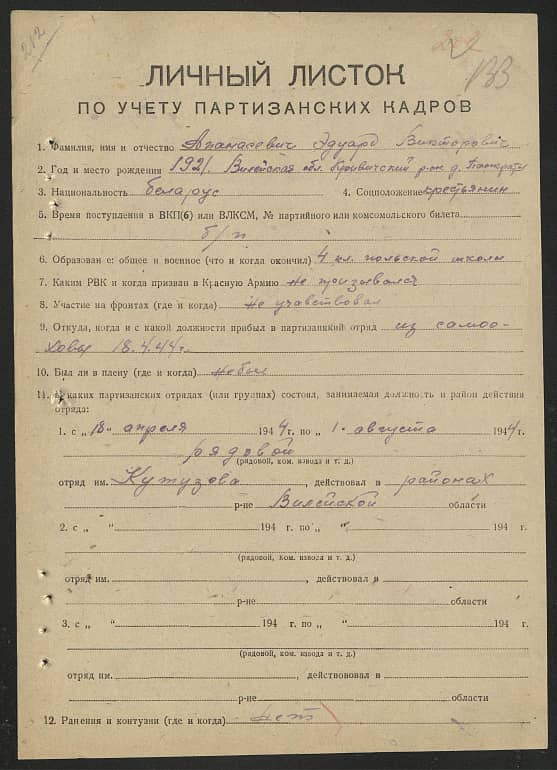 212
ВВ
ЛИЧНЫЙ ЛИСТОК
ПО УЧЕТУ ПАРТИЗАНСКИХ КАДРОВ
1. Фамилия, имя и отчество Апанасевич Эдуард Викторович
2. Год и место рождения 1921. Вилейская обл. Кривичский р-он д.
3. Национальность беларус 4. Соцположение крестьянин
5. Время поступления в ВКП(б) или ВЛКСМ, № партийного или комсомольского билета
б/п
6. Образование: общее и военное (что и когда окончил) 4 кл. польской школы
7. Каким РВК и когда призван в Красную Армию не призывался
8. Участие на фронтах (где и когда) Не учавствовал
9. Откуда, когда и с какой должности прибыл в партизанский отряд из самоо-
ховы 18.4.44г.
10. Был ли в плену (где и когда) Не был
11. В каких партизанских отрядах (или группах) состоял, занимаемая должность и район действия
отряда:
1. с „18" апреля 1944 г. по „1" августа 1944 г.
рядовой
(рядовой, ком. взвода и т. д.)
отряд им. Кутузова, действовал в районах
р-не Вилейской области
2. с „ " 194 г. по „ " 194 г.
(рядовой, ком. взвода и т. д.)
отряд им. , действовал в
р-не области
3. с „ " 194 г. по „ " 194 г.
(рядовой, ком. взвода и т. д.)
отряд им. , действовал в
р-не области
12. Ранения и контузии (где и когда) нет